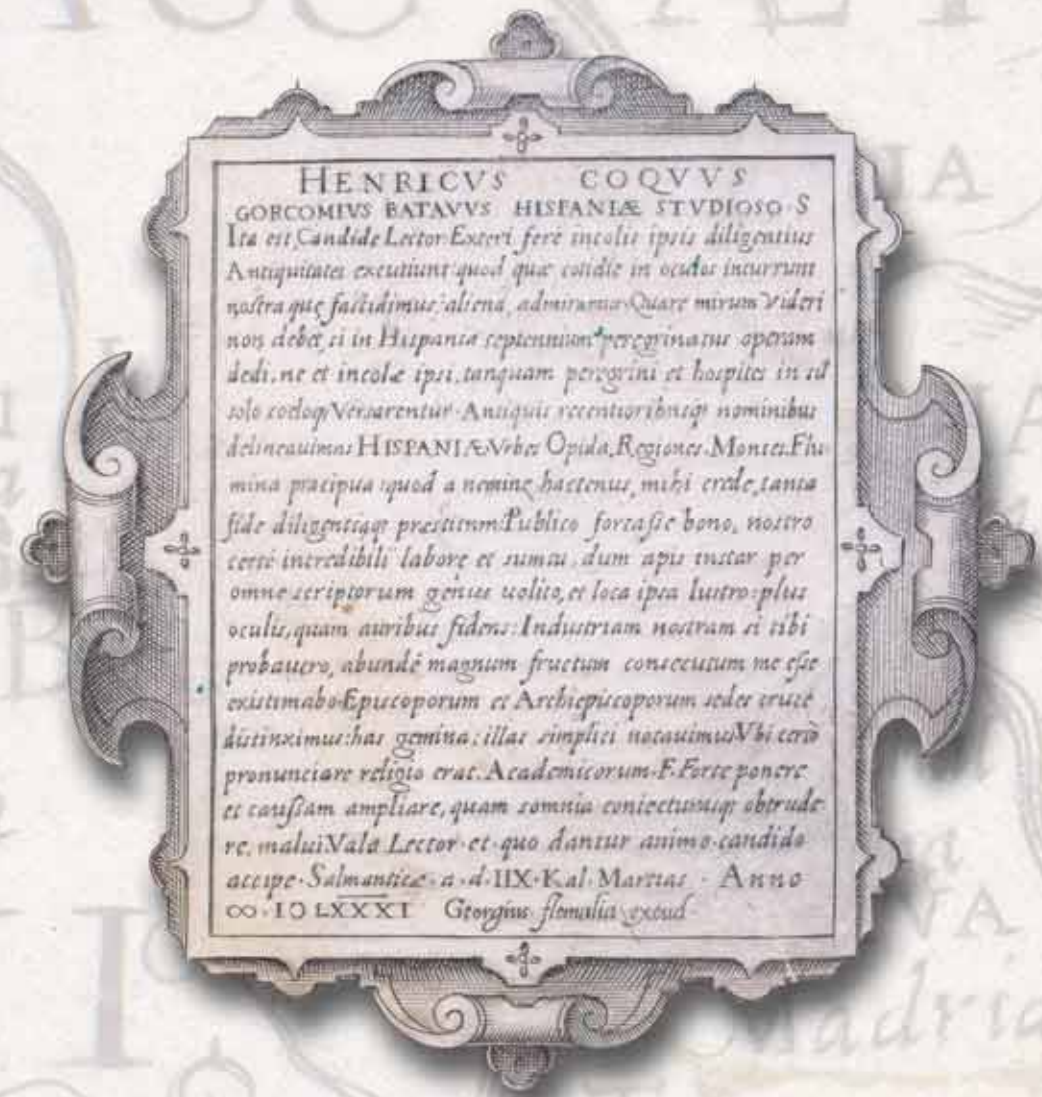 HENRICVS COQVVS
GORCOMIVS BATAVVS HISPANIÆ STVDIOSO S
Ita est Candide Lector. Exteri ferè incolis ipsis diligentius
Antiquitates excutiunt: quod quæ cotidie in oculos incurrunt
nostra quę fastidimus, aliena, admiramur. Quare mirum videri
non debet, si in Hispania septennium peregrinatus operam
dedi, ne et incolæ ipsi, tanquam peregrini et hospites in
solo cœloq; Versarentur. Antiquis recentioribusq; nominibus
delineauimus HISPANIÆ Vrbes Opida, Regiones. Montes. Flu
mina præcipua: quod a nemine hactenus, mihi crede, tanta
fide diligentiaq; præstitum: Publico fortaſse bono, nostro
certè incredibili labore et sumtu, dum apis instar per
omne scriptorum genus uolito, et loca ipsa lustro: plus
oculis, quam auribus fidens: Industriam nostram si tibi
probauero, abundè magnum fructum consecutum me eſse
existimabo. Episcoporum et Archiepiscoporum sedes cruce
distinximus: has gemina: illas simplici notauimus. Vbi certò
pronunciare religio erat. Academicorum. F. Forte ponere
et cauſsam ampliare, quam somnia coniecturasq; obtrude
re, malui. Vale Lector. et quo dantur animo candido
accipe. Salmanticæ. a. d. IIX. Kal. Martias. Anno
∞. IƆ LXXXI Georgius flemalia excud.
IA
Madrid